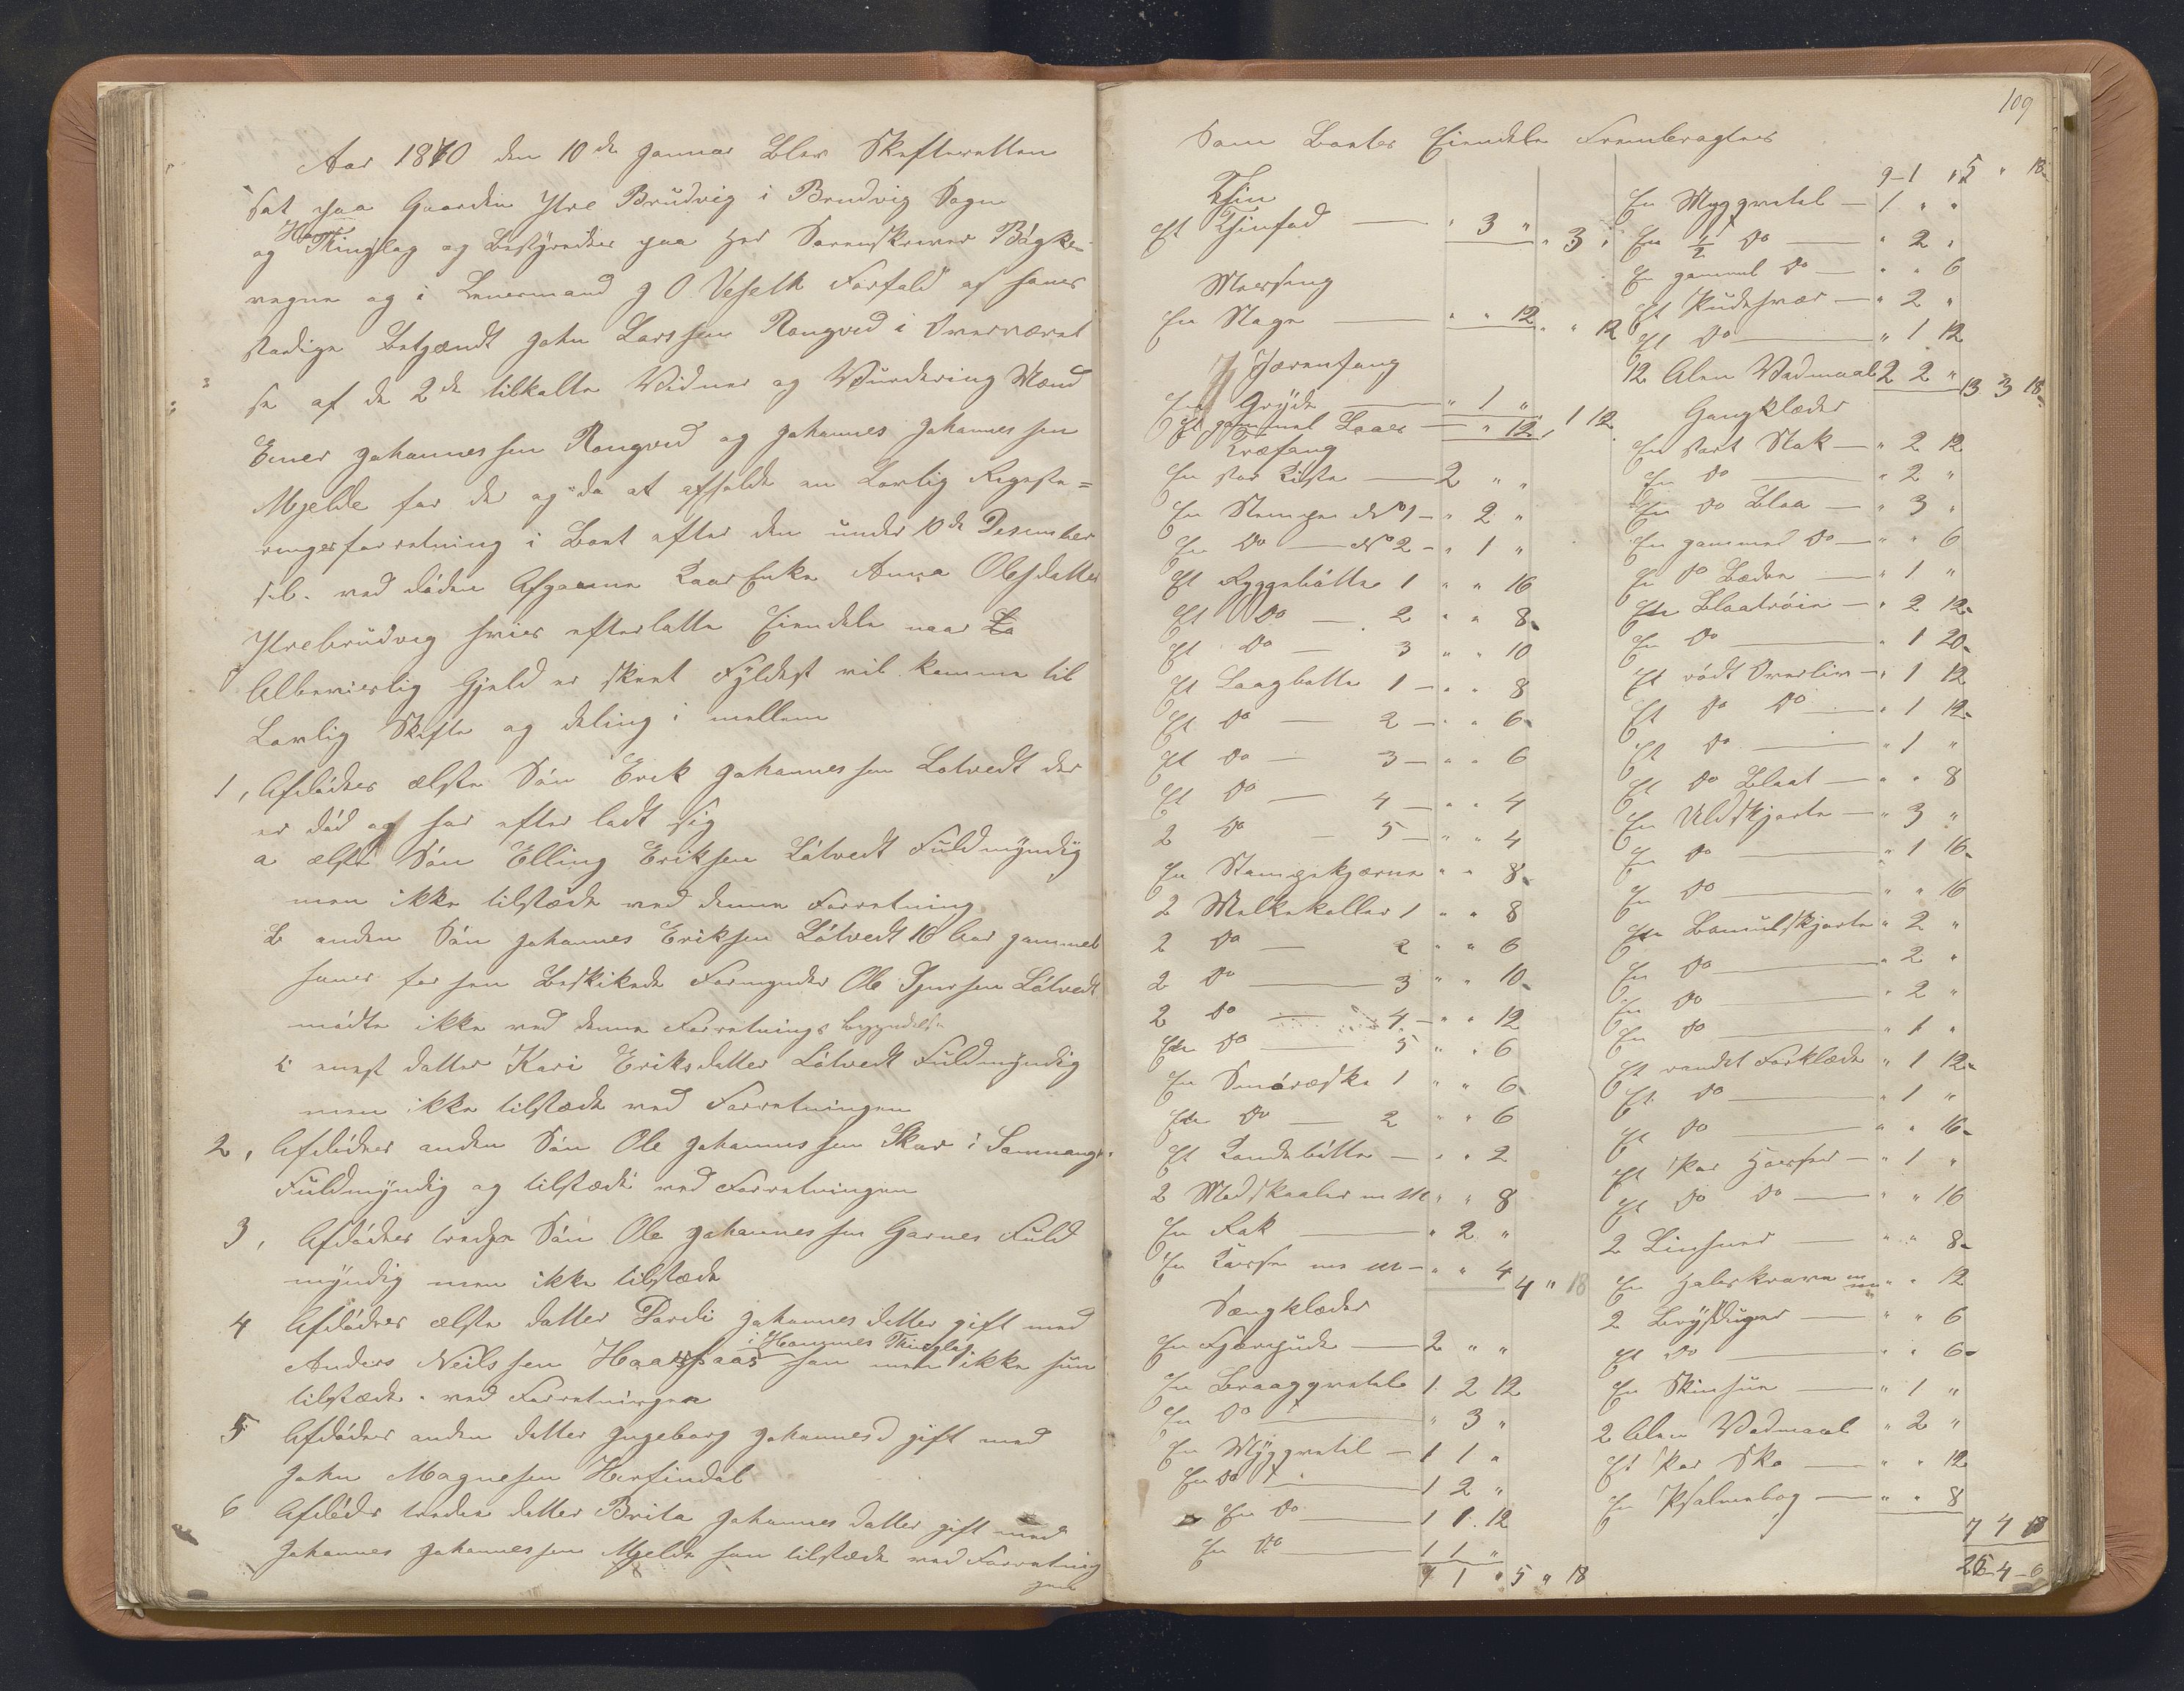 Aar 1870 den 10de Januar Blev Skifteretten
sat paa Gaarden Ytre Brudvig i Brudvig Sogn
og Hammers Thinglag og Bestyredes paa Hr Sorenskriver
vegne og i Lensmand J O Forfald af hans
stadige Betjændt John Larssen Rongved i Overværel
se af de 2de tilkalte Vidner og Vurdering Mænd
Einer Johannessen Rongved og Johannes Johannessen
Mjelde for der og da at afholde en Lovlig Regestre=
ringsforretning i Boet efter den under 10de Desember
f.A. ved døden Afgaaene Kaar Enke Anna Olesdatter
Ytrebrudvig hvis efterlatte Eiendele naar
Albevislig Gjeld er skeet Fyldest vil komme til
Lovlig Skifte og deling i mellem
1, Afdødes ælste Søn Erik Johannessen Løtvedt der
er død og har efter ladt sig
a ælste Søn Elling Eriksen Løtvedt Fuldmyndig
men ikke tilstæde ved denne Forretning
b anden Søn Johannes Eriksen Løtvedt 16 Aar gammel
hans for ham Beskikede Formynder Ole Løtvedt
mødte ikke ved denne Forretnings begyndelse
c enest datter Kari Eriksdatter Løtvedt Fuldmyndig
men ikke tilstæde ved Forretningen
2, Afdødes anden Søn Ole Johannessen Skar i Samnanger
Fuldmyndig og tilstæde ved Forretningen
3, Afdødes tredje Søn Ole Johannessen Garnes Fuld
myndig men ikke tilstæde
4 Afdødes ælste datter Johannes datter gift med
i Hammers Thinglag
Anders Neilssen han men ikke hun
tilstæde ved Forretningen
5 Afdødes anden datter Ingeborg Johannesd gift med
John Magnesen Herfindal
6 Afdødes tredie datter Brita Johannes datter gift med
Johannes Johannessen Mjelde han tilstæde ved Forretning
gen
109
Som Boets Eiendele Frembragtes
Thin
Et Thinfad — " 3 " " 3 "
Meesing
En Stage — " " 12 " " 12
Jærenfang
En Gryde — " 1 "
Et gammel Laas — " " 12 " 1 12
Træfang
En stor Kiste — 2 " "
En Stampe No 1 — " 2 "
En Do — No 2 — " 1 "
Et Ryggebøtte 1 " " 16
Et Do — 2 " " 8
Et Do — 3 " " 10
Et Laagbøtte 1 — " " 8
Et Do — 2 — " " 6
Et Do — 3 — " " 6
Et Do — 4 — " " 4
2 Do — 5 — " " 4
En Stampekjærne " " 8
2 Melkekoller 1 " " 8
2 Do — 2 " " 6
2 Do — 3 " " 10
2 Do — 4 — " " 12
En Do — 5 " " 6
En Smøræske 1 " " 6
En Do — 2 " " 6
Et Vandebøtte — " " 2
2 Madskaaler m M " " 8
En Rok — " 2 "
En Kurse m m — " " 4 4 " 18
Sængklæder
En Fjærpude — 2 " "
En Braaggretel 1 2 12
En Do — " 3 "
En Myggretel — 1 1 "
En Do — 1 2 "
En Do — 1 1 12
En Do — 1 1 "
9 1 " 5 " 18
9 — 1 " 5 " 18
En Myggretel — 1 " "
En ½ Do — " 2 "
En gammel Do — " " 6
Et Pudesvær — " 2 "
Et Do — " 1 12
12 Alen Vadmaal 2 2 " 13 3 18
Gangklæder
En sort Stak — " 2 12
En Do — " 2 "
En Do Blaa — " 3 "
En gammel Do — " " 6
En Do Bedre — " 1 "
En Blaatrøie — " 2 12
En Do — " 1 20
Et rødt Overliv — " 1 12
Et Do Do — " 1 12
Et Do — " 1 "
Et Do Blaat — " " 8
En Uldskjorte — " 3 "
En Do — " 1 16
En Do — " " 16
En Bomulskjorte " 2 "
En Do — " 2 "
En Do — " 2 "
En Do — " 1 "
Et randet Forklæde " 1 12
Et Do — " 1 "
Et Do — " " 16
Et Par Hosser — " 1 "
Et Do Do — " " 16
2 Linhuer — " " 8
En Halskrave " " 12
2 Brystduger — " " 6
Et Do — " " 6
En Skinhue — " 1 "
2 Alen Vadmaal " 2 "
Et Par Sko — " " 12
En Psalmebog — " " 8
7 4 18
26 — 4 — 6